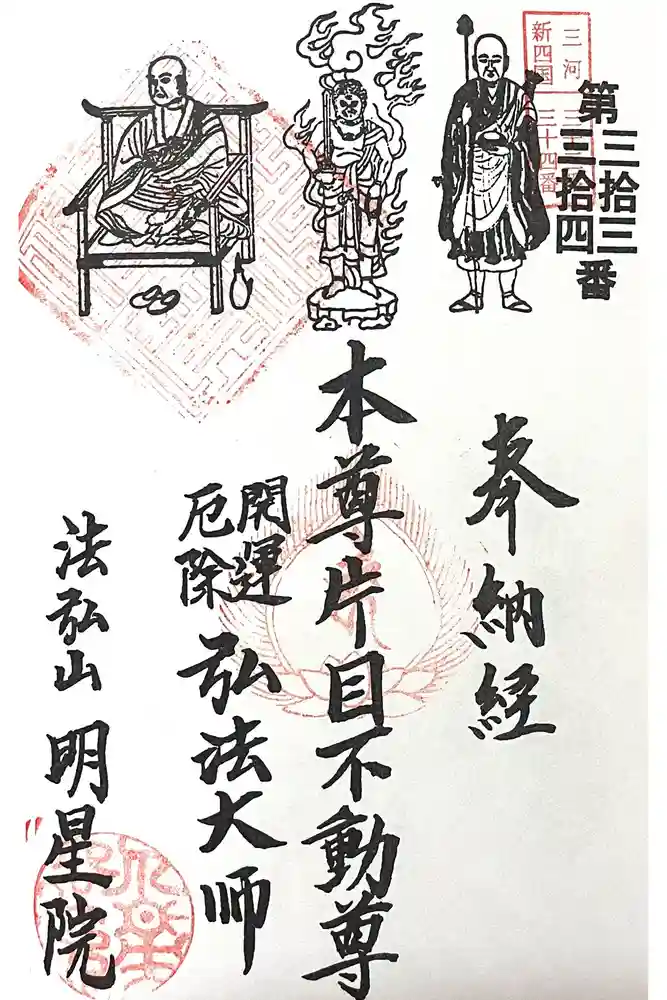 三河
新四国
三十三
三十四番
第三拾三
三拾四番
奉納経
本尊片目不動尊
開運
厄除
弘法大师
法弘山 明星院